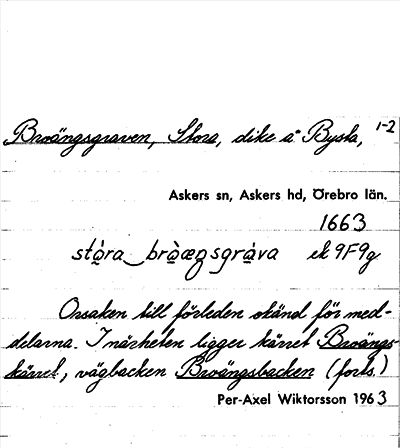 Broängsgraven, Stora, dike å Bysta, 1-2
Askers sn, Askers hd, Örebro län.
1663
stóra broængsgráva ek 9F9g
Orsaken till förleden okänd för med-
delarna. I närheten ligger kärret Broängs-
kärret, vägbacken Broängsbacken (forts.)
Per-Axel Wiktorsson 1963